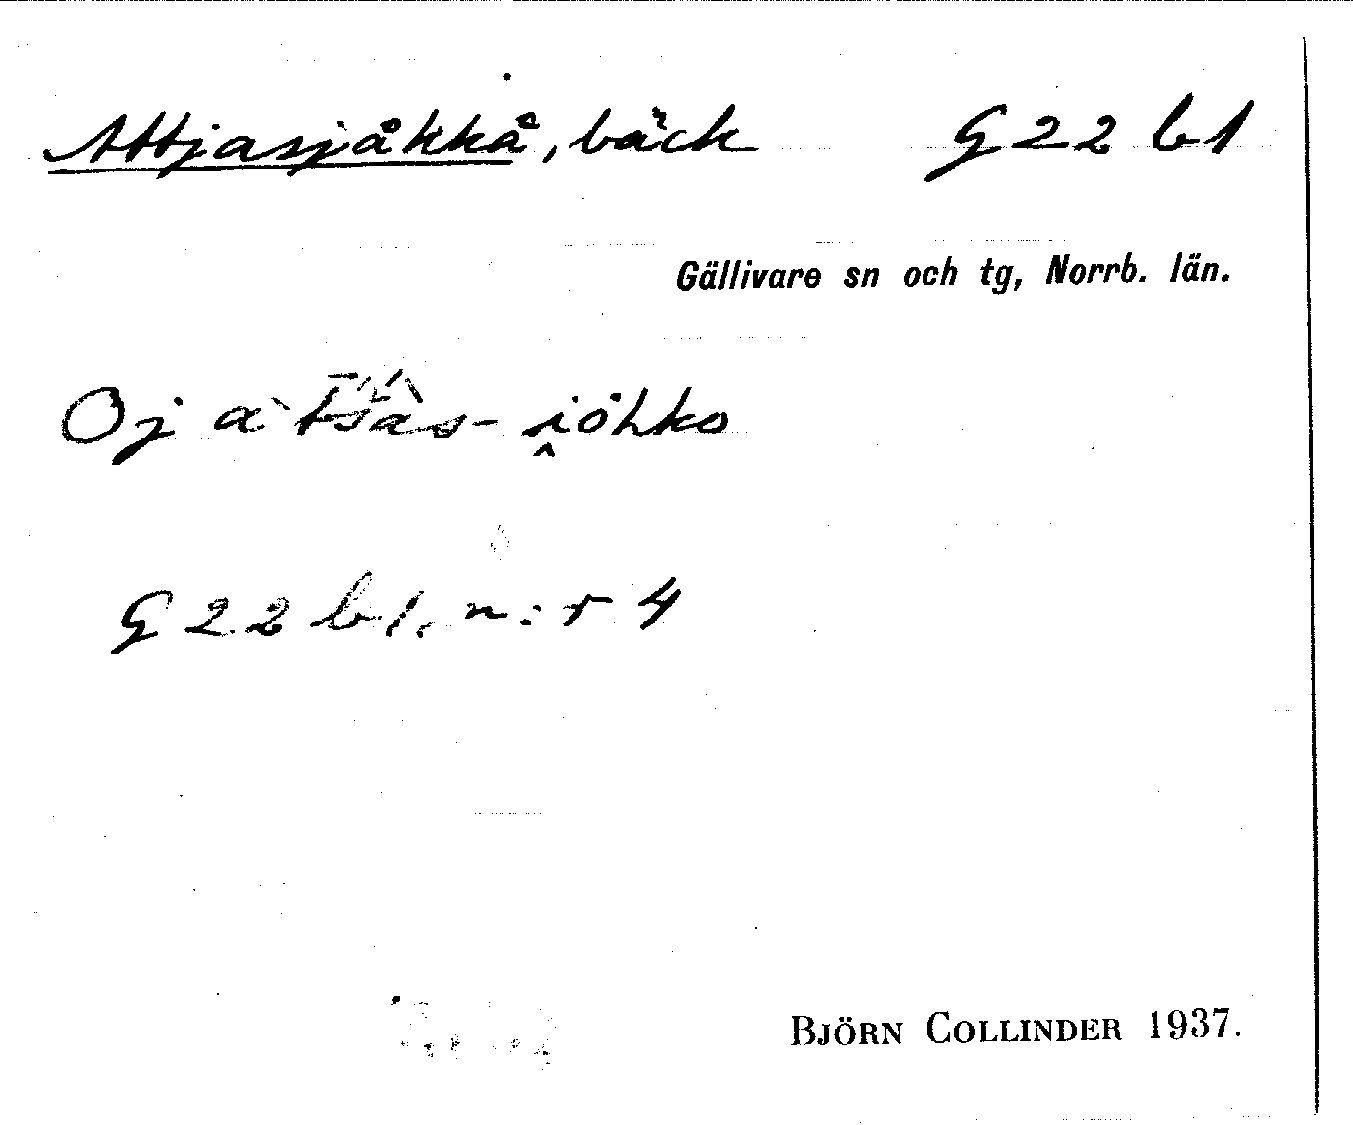 Attjasjåkkå, bäck G 22 b 1
Gällivare sn och tg, Norrb. län.
Oj a`t̄śàs- i̭òhko
G 22 b 1, n:r 4
BJÖRN COLLINDER 1937.